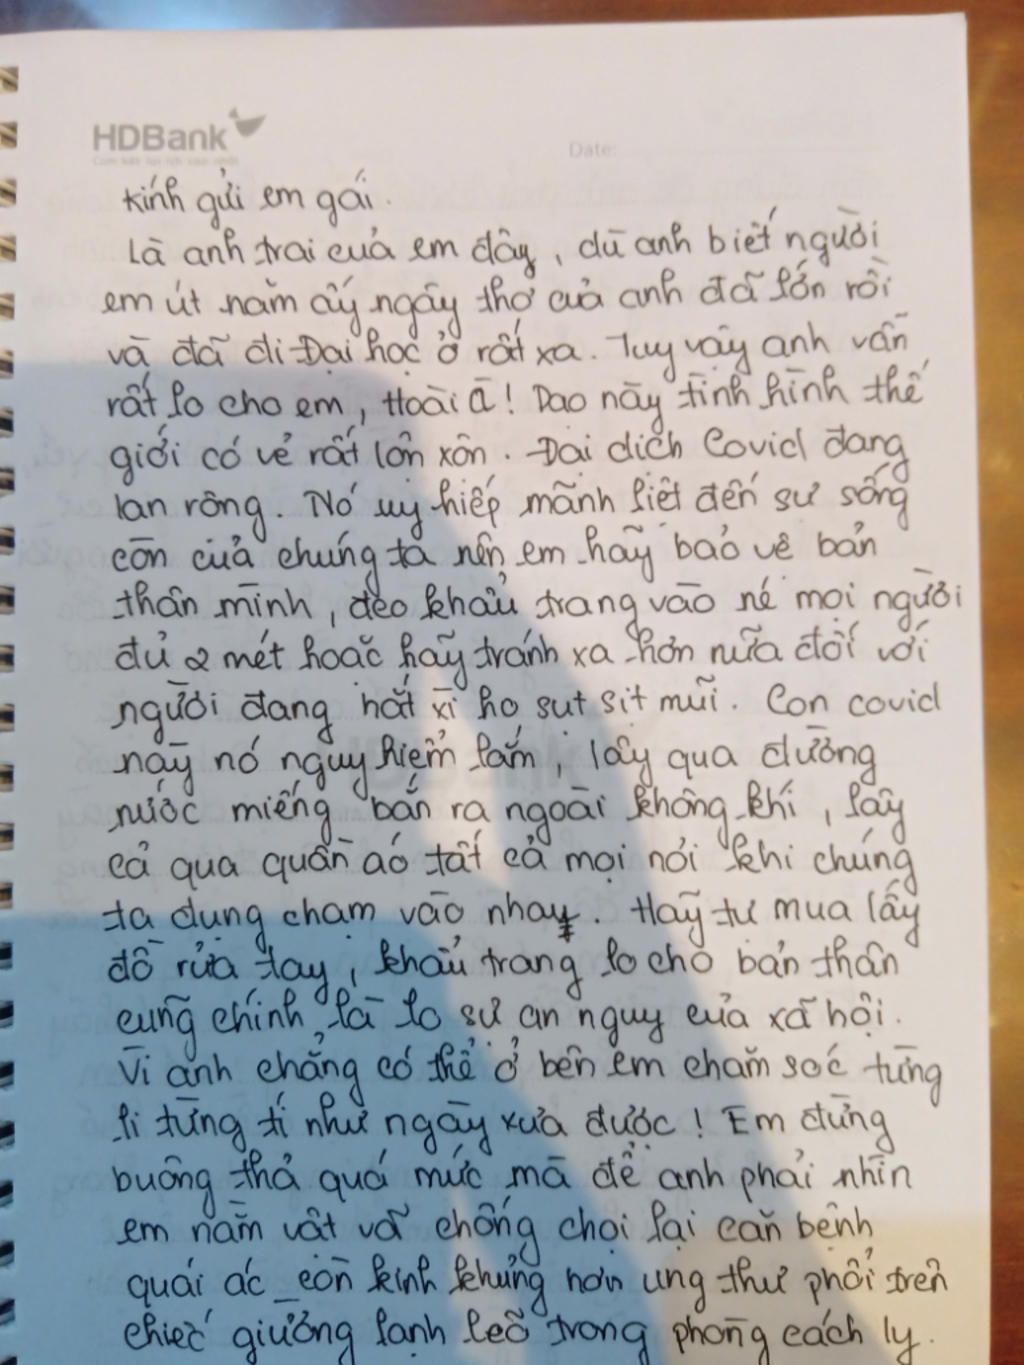 HDBank
Cam kết lợi ích cao nhất
Date:
Kính gửi em gái.
Là anh trai của em đây, dù anh biết người
em út năm ấy ngây thơ của anh đã lớn rồi
và đã đi Đại học ở rất xa. Tuy vậy anh vẫn
rất lo cho em, Hoài à! Dạo này tình hình thế
giới có vẻ rất lộn xộn. Đại dịch Covid đang
lan rộng. Nó uy hiếp mãnh liệt đến sự sống
còn của chúng ta nên em hãy bảo vệ bản
thân mình, đeo khẩu trang vào né mọi người
đủ 2 mét hoặc hãy tránh xa hơn nữa đối với
người đang hắt xì ho sụt sịt mũi. Con covid
này nó nguy hiểm lắm, lây qua đường
nước miếng bắn ra ngoài không khí, lây
cả qua quần áo tất cả mọi nơi khi chúng
ta đụng chạm vào nhau. Hãy tự mua lấy
đồ rửa tay, khẩu trang lo cho bản thân
cũng chính là lo sự an nguy của xã hội.
Vì anh chẳng có thể ở bên em chăm sóc từng
li từng tí như ngày xưa được! Em đừng
buông thả quá mức mà để anh phải nhìn
em nằm vật vã chống chọi lại căn bệnh
quái ác còn kinh khủng hơn ung thư phổi trên
chiếc giường lạnh lẽo trong phòng cách ly.